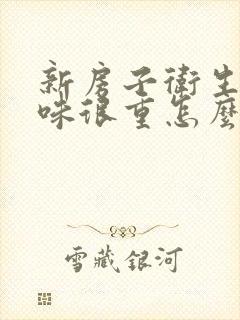 新房子衛生
味很重怎麼
雪藏銀河